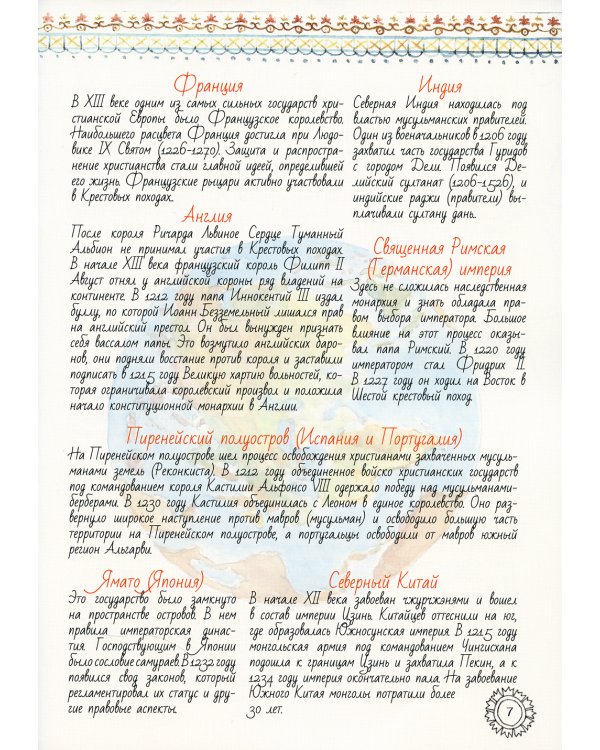 Франция
В XIII веке одним из самых сильных государств хри-
стианской Европы было Французское королевство.
Наибольшего расцвета Франция достигла при Людо-
вике IX Святом (1226-1270). Защита и распростра-
нение христианства стали главной идеей, определившей
его жизнь. Французские рыцари активно участвовали
в Крестовых походах.
Англия
После короля Ричарда Львиное Сердце Туманный
Альбион не принимал участия в Крестовых походах.
В начале XIII века французский король Филипп II
Август отнял у английской короны ряд владений на
континенте. В 1212 году папа Иннокентий III издал
буллу, по которой Иоанн Безземельный лишался прав
на английский престол. Он был вынужден признать
себя вассалом папы. Это возмутило английских баро-
нов, они подняли восстание против короля и заставили
подписать в 1215 году Великую хартию вольностей, ко-
торая ограничивала королевский произвол и положила
начало конституционной монархии в Англии.
Индия
Северная Индия находилась под
властью мусульманских правителей.
Один из военачальников в 1206 году
захватил часть государства Гуридов
с городом Дели. Появился Де-
лийский султанат (1206-1526), и
индийские раджи (правители) вы-
плачивали султану дань.
Священная Римская
(Германская) империя
Здесь не сложилась наследственная
монархия и знать обладала пра-
вом выбора императора. Большое
влияние на этот процесс оказы-
вал папа Римский. В 1220 году
императором стал Фридрих II.
В 1227 году он ходил на Восток в
Шестой крестовый поход.
Пиренейский полуостров (Испания и Португалия)
На Пиренейском полуострове шел процесс освобождения христианами захваченных мусуль-
манами земель (Реконкиста). В 1212 году объединенное войско христианских государств
под командованием короля Кастилии Альфонсо VIII одержало победу над мусульманами-
берберами. В 1230 году Кастилия объединилась с Леоном в единое королевство. Оно раз-
вернуло широкое наступление против мавров (мусульман) и освободило большую часть
территории на Пиренейском полуострове, а португальцы освободили от мавров южный
регион Альгарви.
Ямато (Япония)
Это государство было замкнуто
на пространстве островов. В нем
правила императорская динас-
тия. Господствующим в Японии
было сословие самураев. В 1232 году
появился свод законов, который
регламентировал их статус и дру-
гие правовые аспекты.
Северный Китай
В начале XII века завоеван чжурчжэнями и вошел
в состав империи Цзинь. Китайцев оттеснили на юг,
где образовалась Южносунская империя. В 1215 году
монгольская армия под командованием Чингисхана
подошла к границам Цзинь и захватила Пекин, а к
1234 году империя окончательно пала. На завоевание
Южного Китая монголы потратили более
30 лет.
7